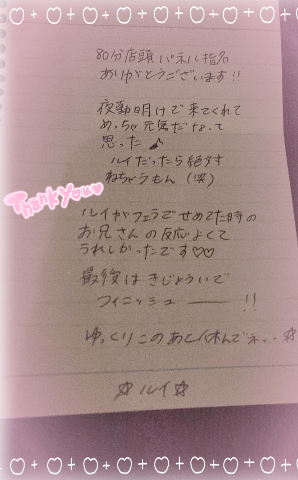 80分店頭パネル指名
ありがとうございます!!
夜勤明けで来てくれて
めっちゃ元気だなって
思った♪
ルイだったら絶対す
ねちゃうもん(笑)
Thank You
ルイがフェラでせめてた時の
お兄さんの反応よくて
うれしかったです♡♡
最後はきじょういで
フィニッシュ――!!
ゆっくりこのあと休んでネ..☆
☆ルイ☆